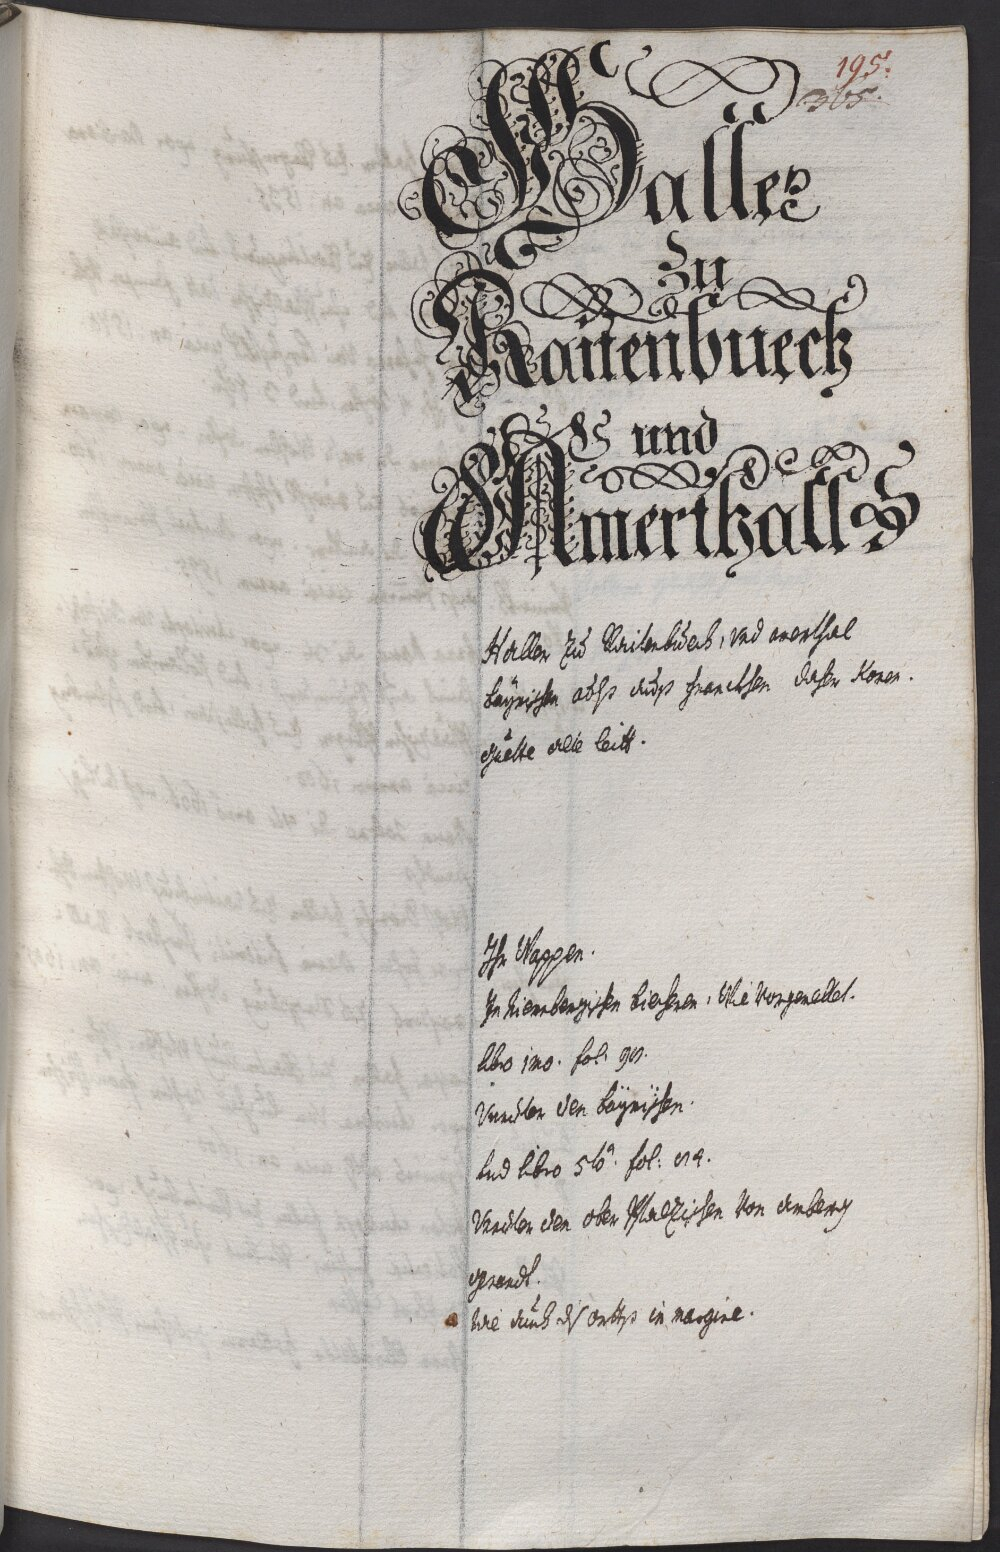 195.
365.
Haller
Zu
Raitenbuech
und
Amerthall
Haller zu Raitenbuech, und amerthal
bayrischen auß franckhen daher komen.
guette alte leitt.
Ihr Wappen.
In Niernbergischen biechern, Wie Vorgemelt.
libro imo. fol. 90.
Under den bayrischen.
Und libro 5to. fol.
Under den ober Pfalzischen Von amberg
genandt.
wie auch diß orths in margine.